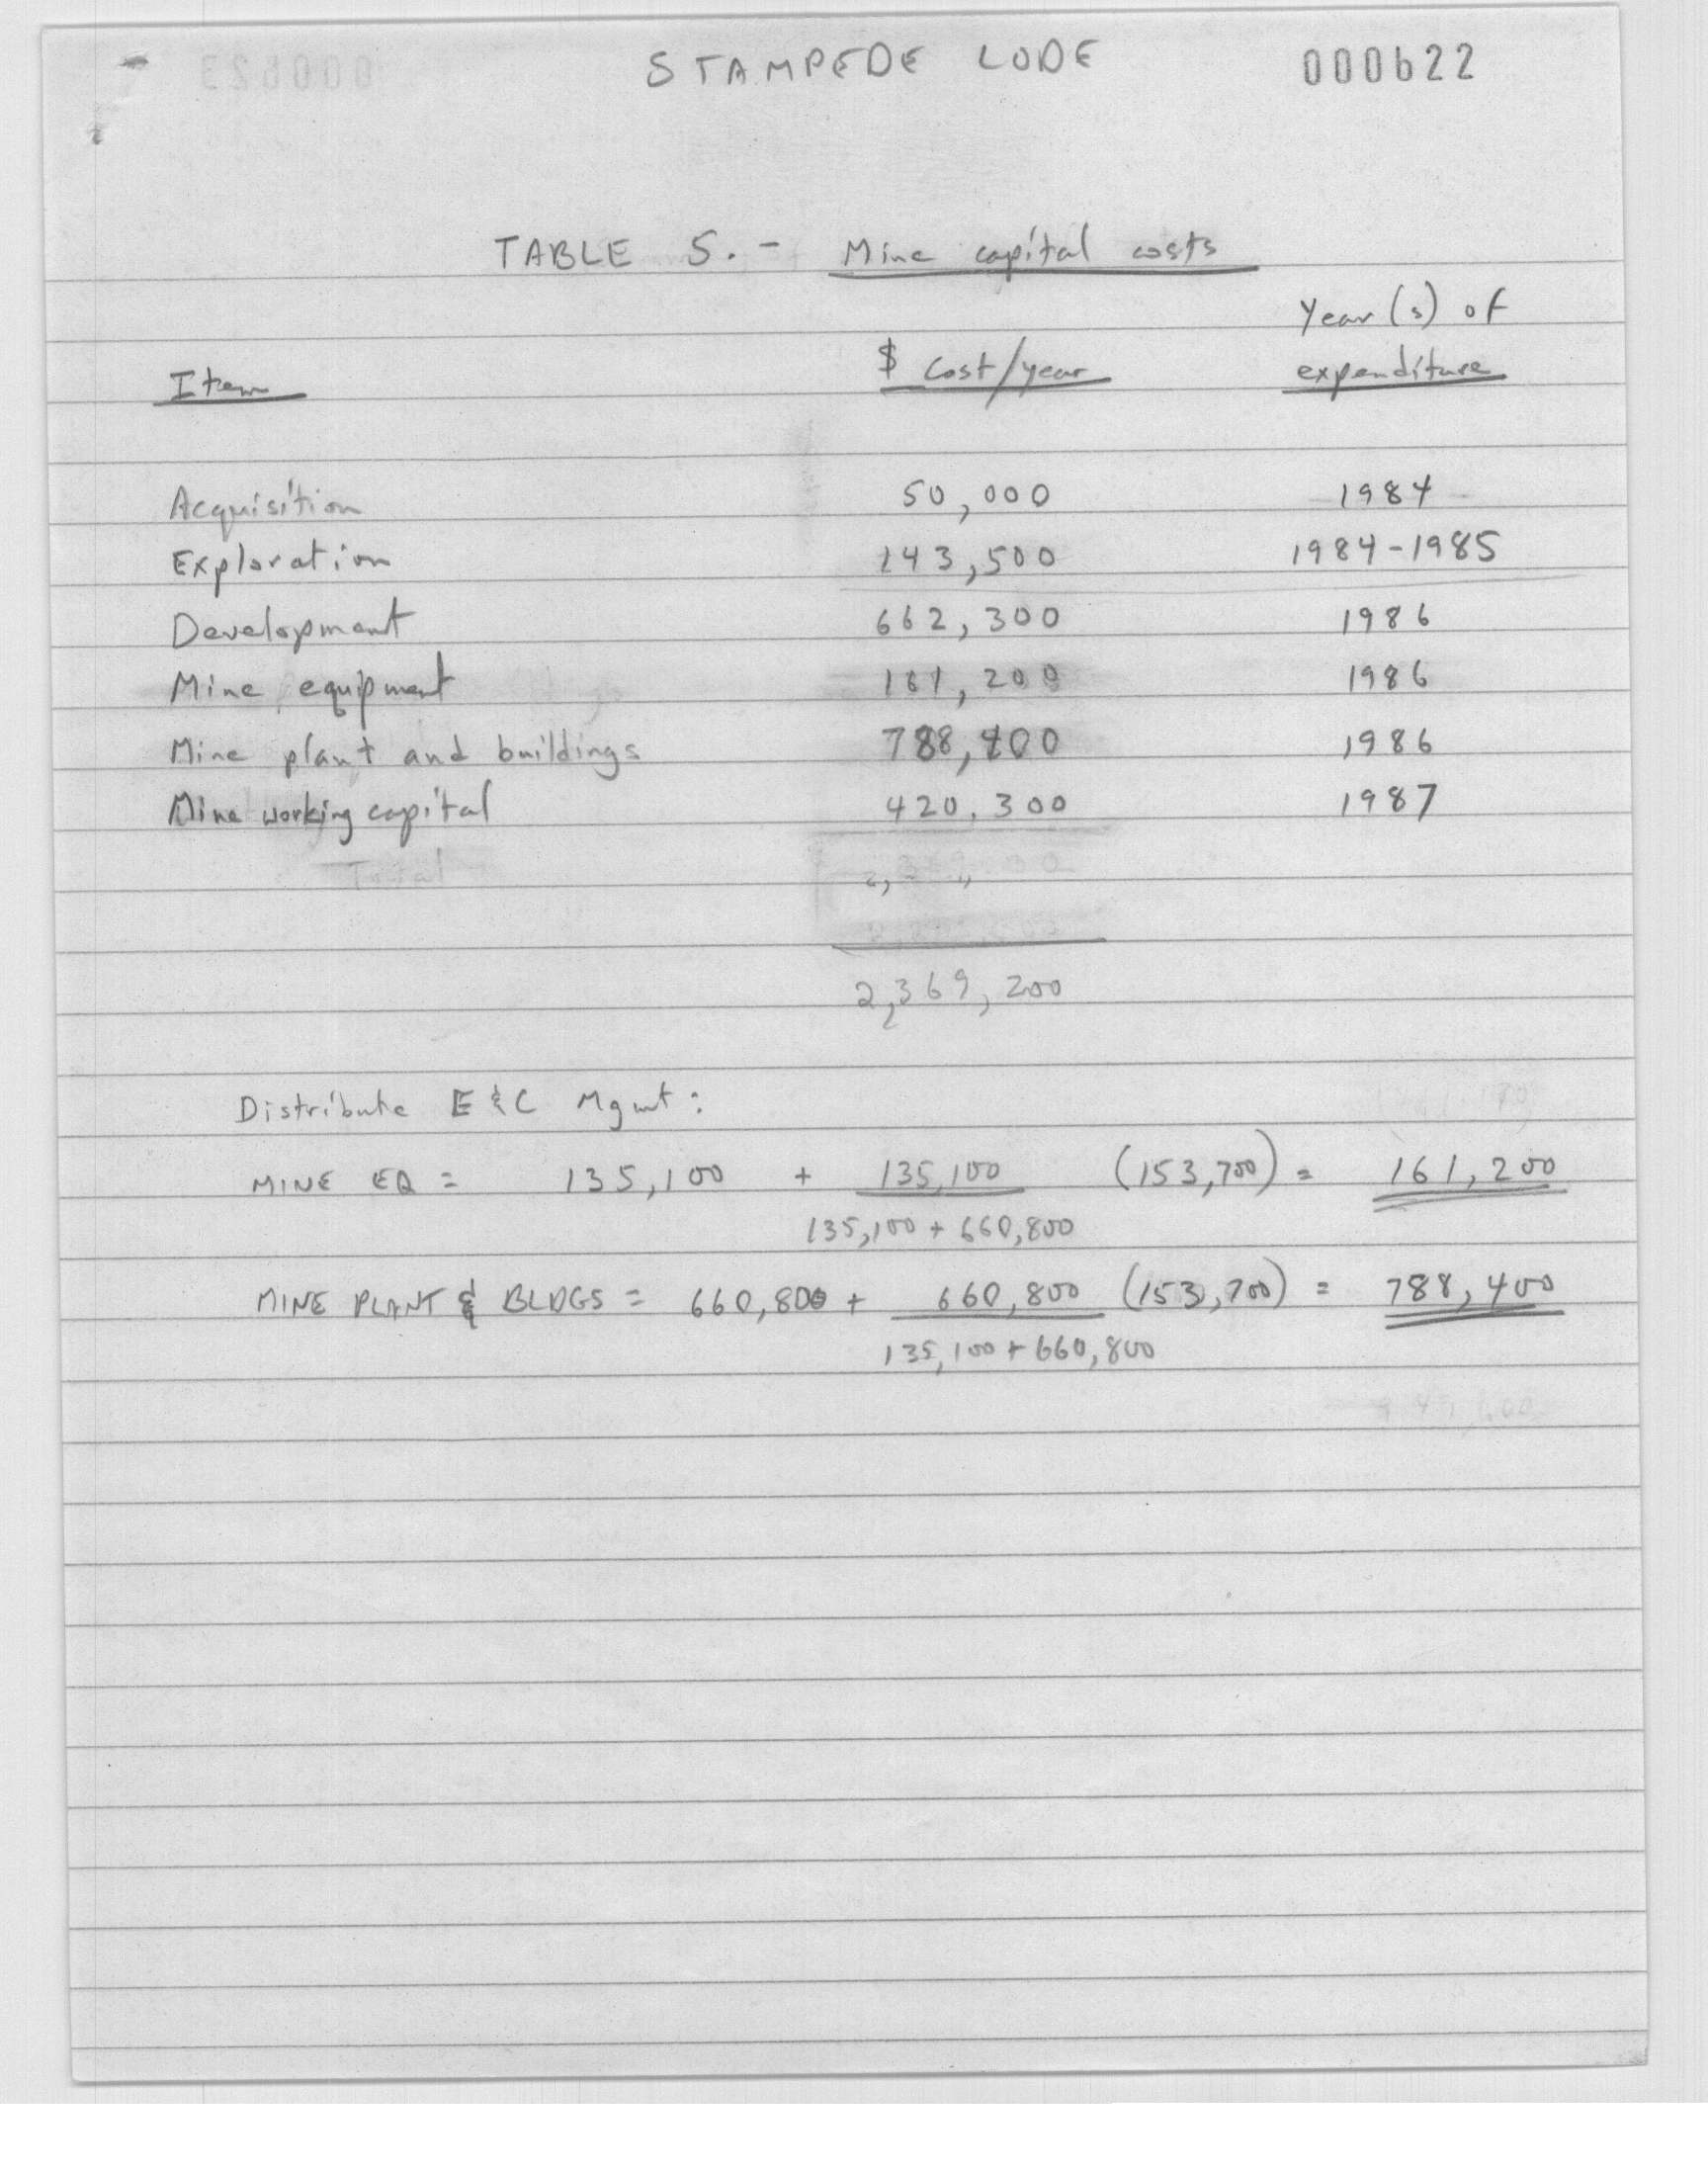 STAMPEDE LODE 000622
TABLE 5.- Mine capital costs
Year(s) of
Item $ Cost/year expenditure
Acquisition 50,000 1984
Exploration 143,500 1984-1985
Development 662,300 1986
Mine equipment 161,200 1986
Mine plant and buildings 788,400 1986
Mine working capital 420,300 1987
Total
2,369,200
Distribute E&C Mgmt:
MINE EQ = 135,100 + 135,100 (153,700) = 161,200
135,100 + 660,800
MINE PLANT & BLDGS = 660,800 + 660,800 (153,700) = 788,400
135,100 + 660,800